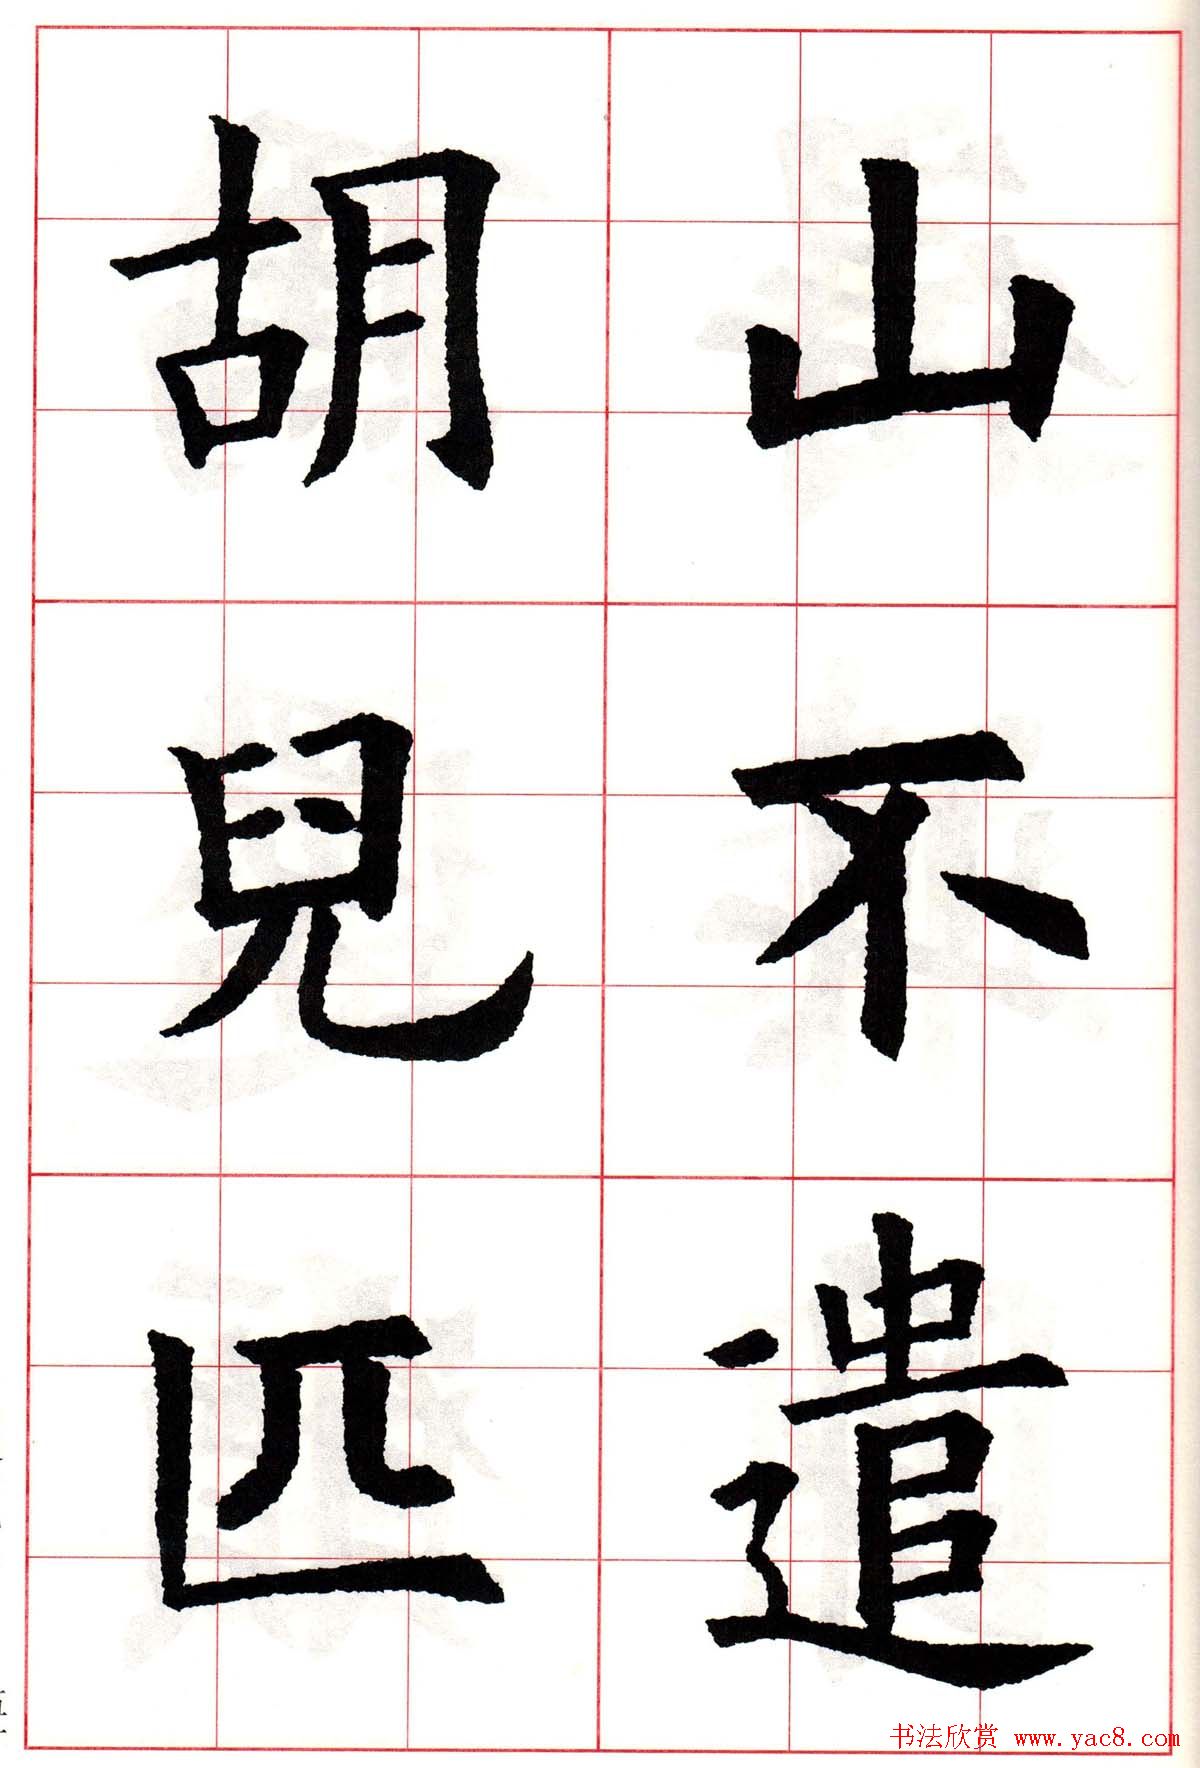 山不遣
胡兒匹
书法欣赏 www.yac8.com